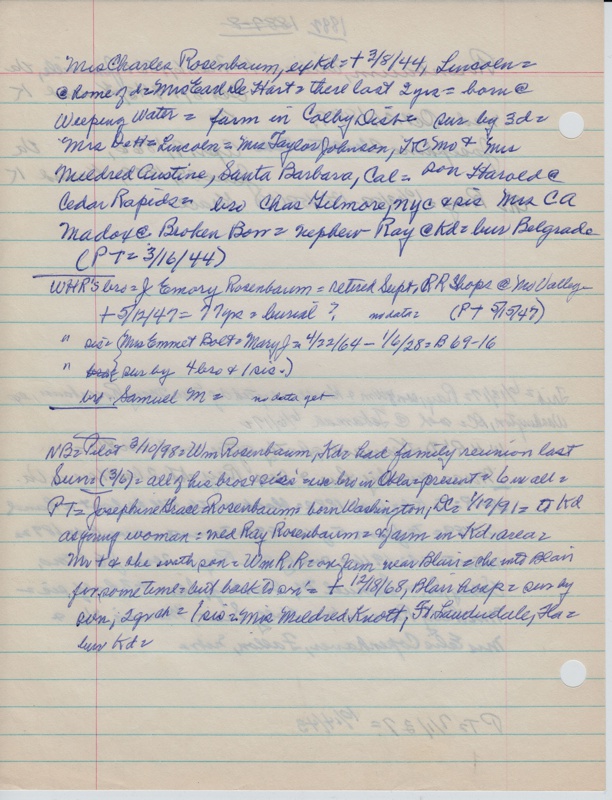 Mrs Charles Rosenbaum, exKd = + 3/8/44, Lincoln =
@ home of d = Mrs Earl De Hart = there last 2 yrs = born @
Weeping Water = farm in Colby Dist = sur by 3d =
Mrs DeH = Lincoln = Mrs Taylor Johnson, KC Mo & Mrs
Mildred Austine, Santa Barbara, Cal = son Harold @
Cedar Rapids = bro Chas Gilmore, NYC & sis Mrs CA
Madox @ Broken Bow = nephew Ray @ Kd = bur Belgrade
(PT = 3/16/44)
WHR's bro = J. Emory Rosenbaum = retired Supt, RR Shops @ Mo Valley =
+ 5/12/47 = 77 yrs = burial ? no data = (PT 5/15/47)
" sis = {Mrs Emmet Bolt = Mary J = 4/22/64 - 1/6/28 = B 69-16
" {sur by 4 bro & 1 sis.)
bro Samuel M = no data yet
NB = Pilot 3/10/98 = Wm Rosenbaum, Kd = had family reunion last
Sun = (3/6) = all of his bros & sis = bro in Okla = present = 6 in all =
PT = Josephine Grace = Rosenbaum = born Washington, DC = 1/12/91 = to Kd
as young woman = med Ray Rosenbaum = & farm in Kd. area =
Mr + & she with son = Wm R. R = on farm near Blair = she into Blair
for some time = but back to = + 12/18/68, Blair hosp = sur by
son, 2 grch = 1 sis = Mrs Mildred Knott, Ft Lauderdale, Fla =
bur Kd =